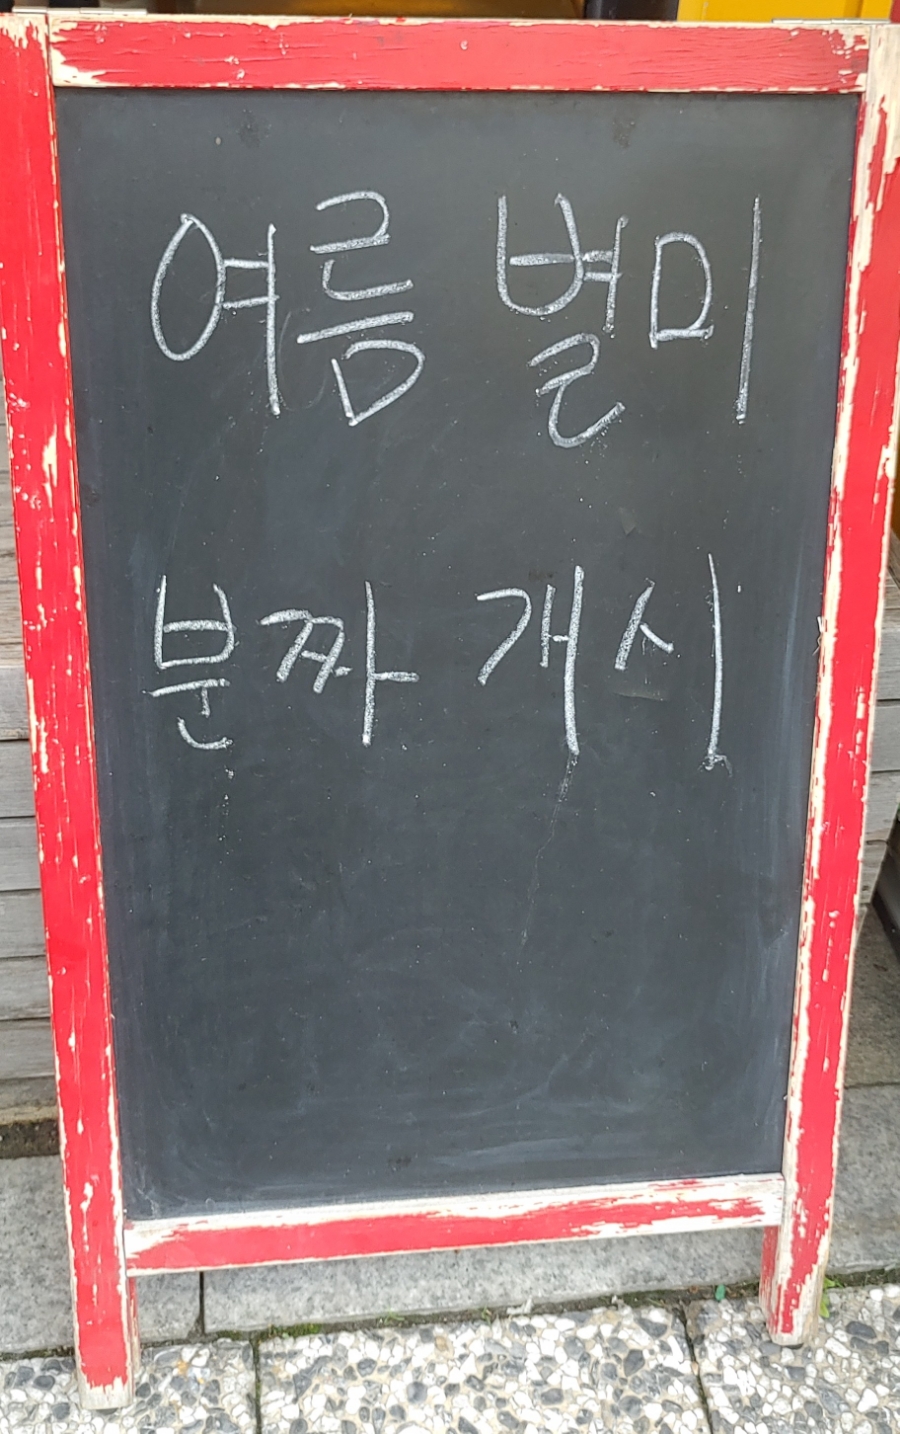 여름 별미
분짜 개시